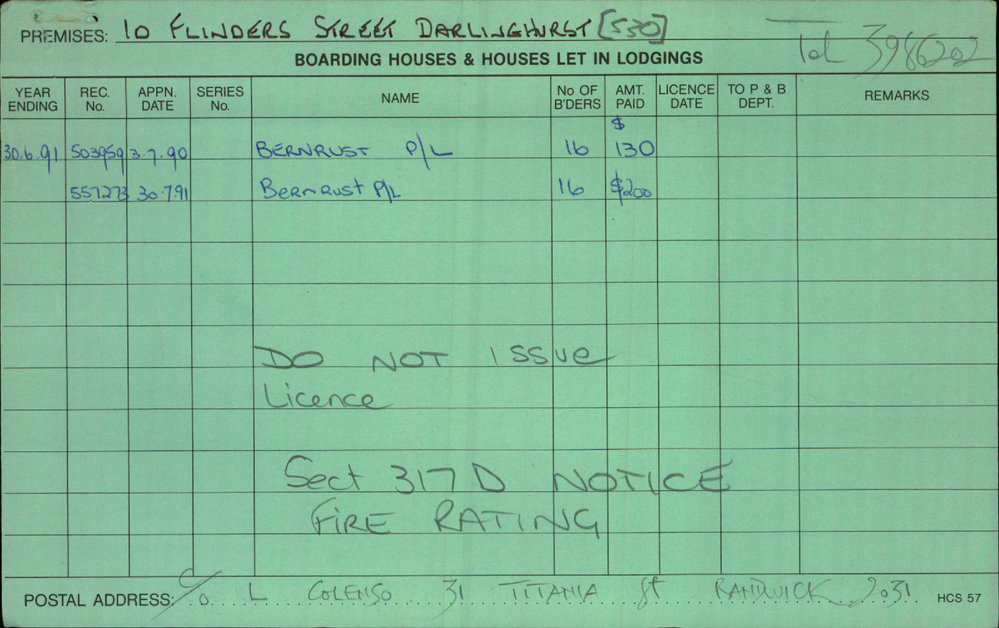 PREMISES: 10 FLINDERS STREET DARLINGHURST [530]
BOARDING HOUSES & HOUSES LET IN LODGINGS Tel 3986202
YEAR ENDING REC. No. APPN. DATE SERIES No. NAME No OF B'DERS AMT. PAID LICENCE DATE TO P & B DEPT. REMARKS
30.6.91 503959 3.7.90 BERNRUST P/L 16 $ 130
557273 30.7.91 BERNRUST P/L 16 $200
DO NOT ISSUE
Licence
Sect 317D NOTICE
FIRE RATING
POSTAL ADDRESS: C/o L COLENSO 31 TITANIA St RANDWICK 2031 HCS 57